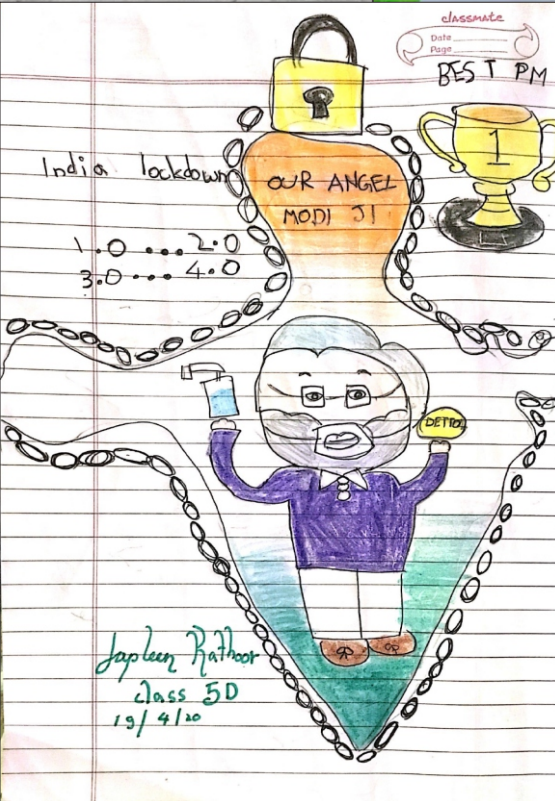 classmate
Date
Page
BEST PM
1
India lockdown
OUR ANGEL
MODI JI
1.0 ... 2.0
3.0 .... 4.0
DETTOL
Japleen Rathoor
class 5D
19/4/20